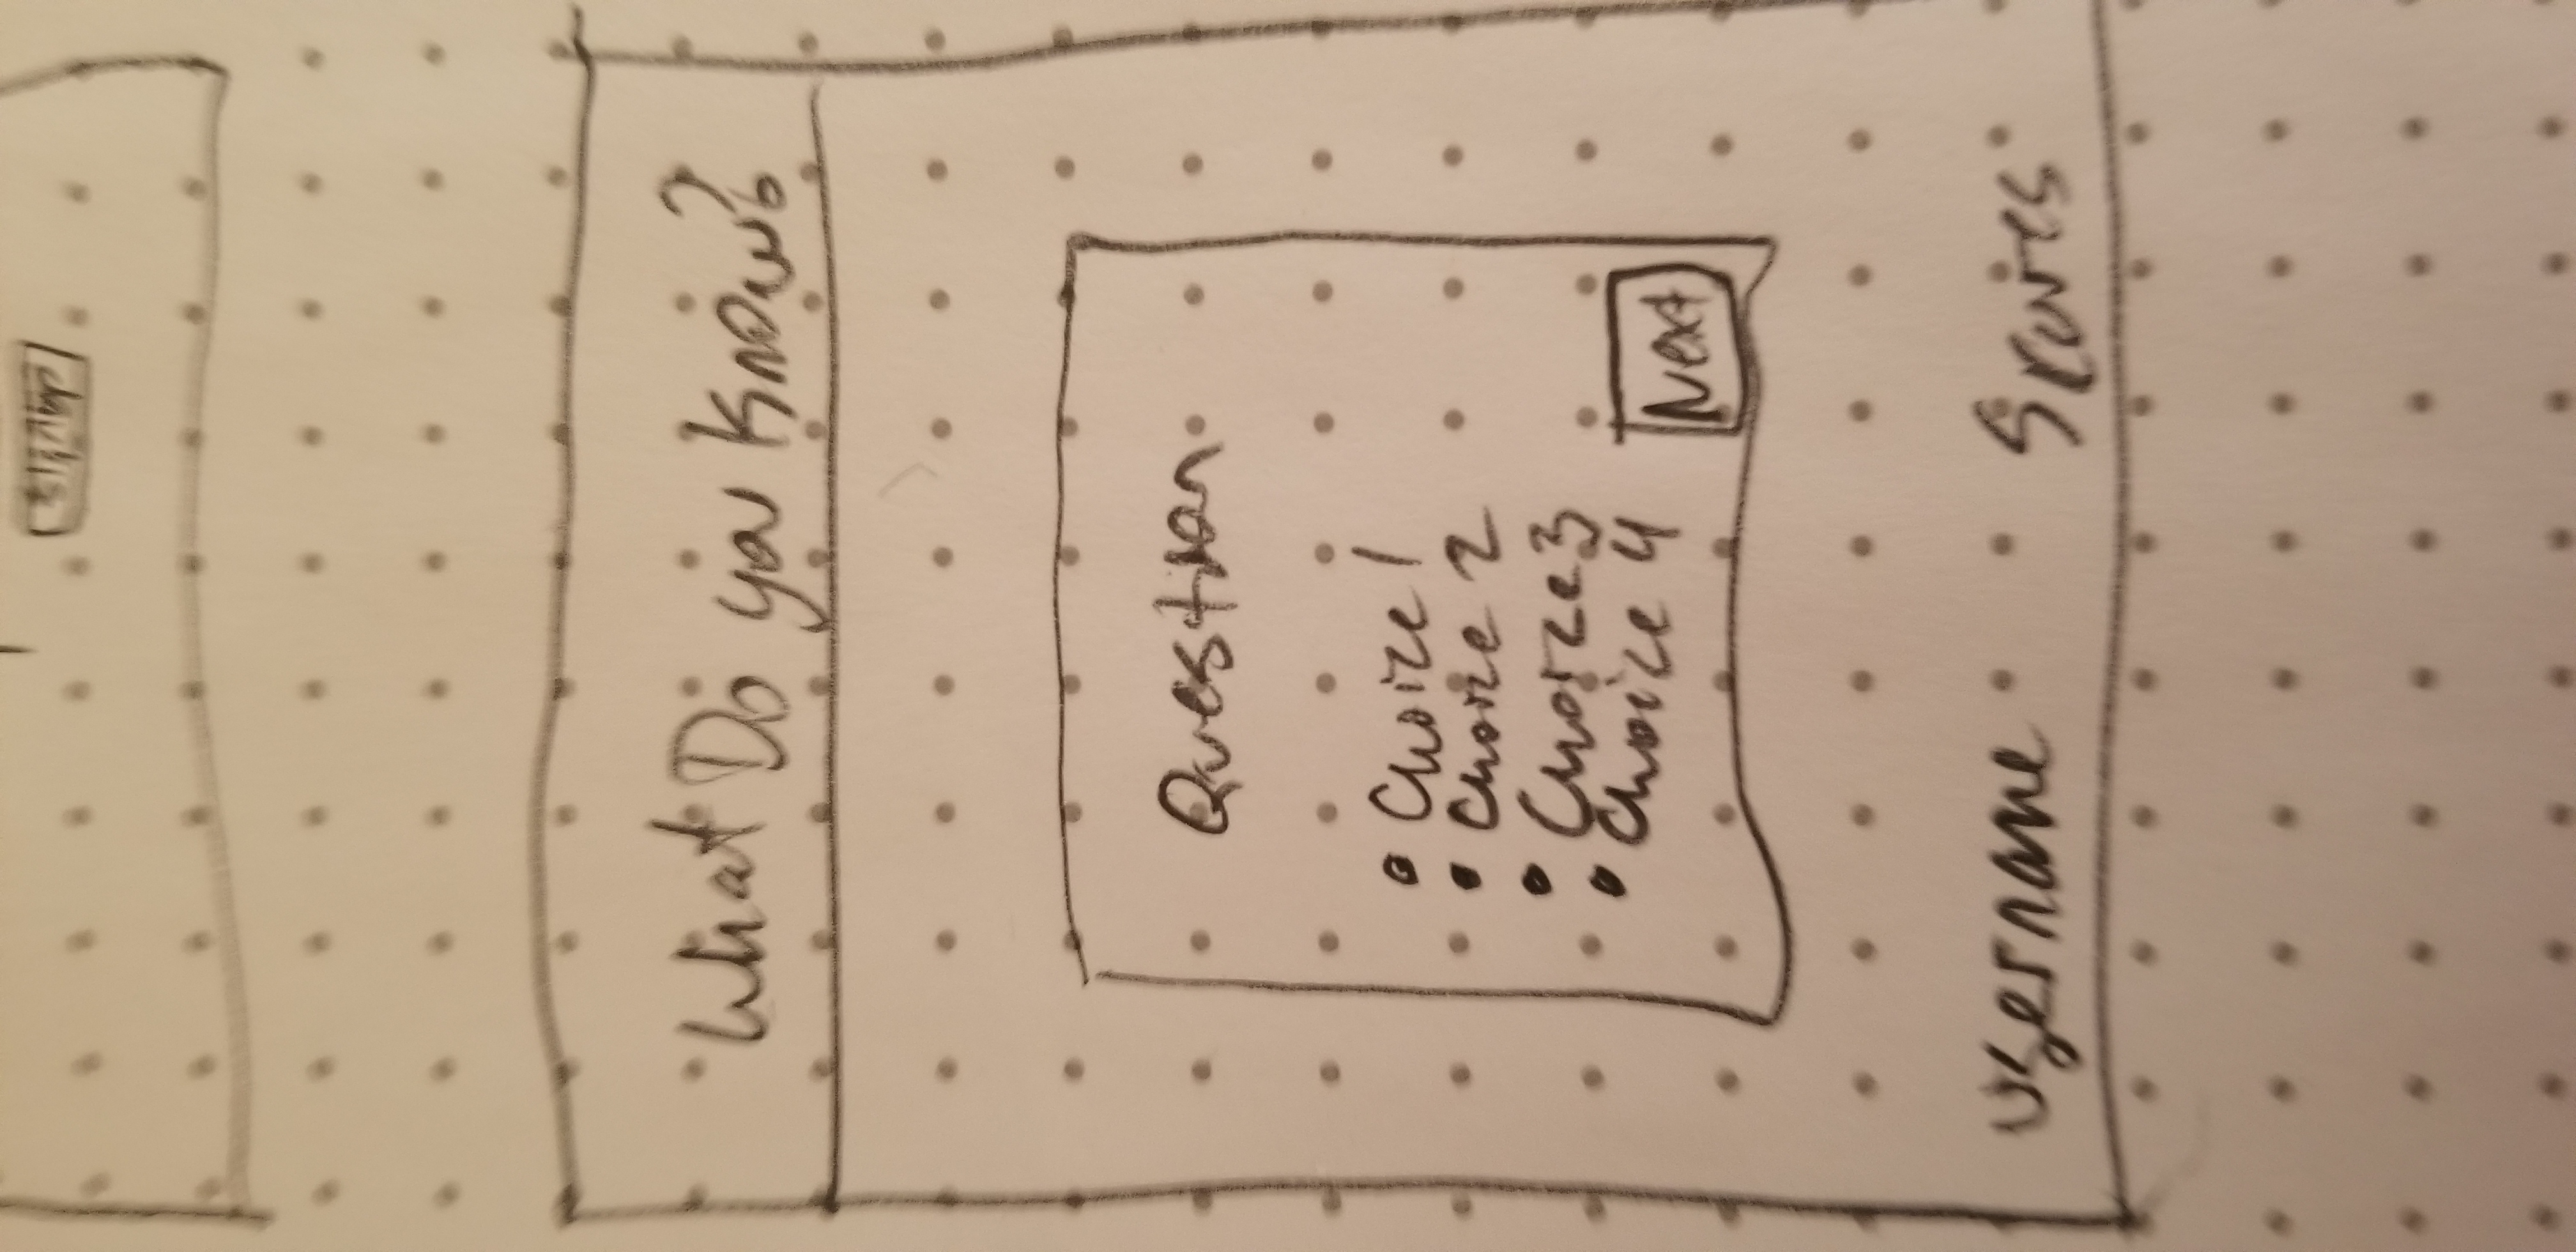 Signup
What Do you Know?
Question
• Choice 1
• Choice 2
• Choice 3
• Choice 4
Next
Username Scores